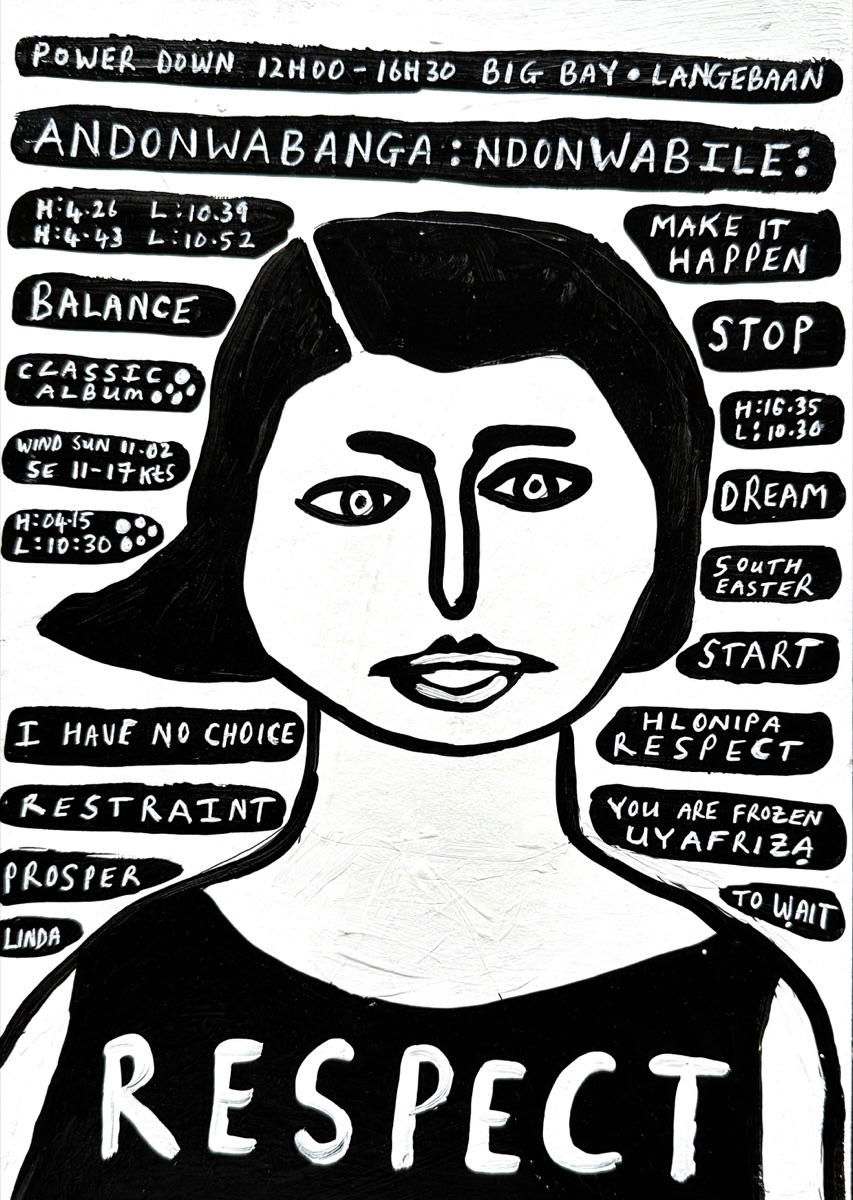 POWER DOWN 12H00-16H30 BIG BAY • LANGEBAAN
ANDONWABANGA:NDONWABILE:
H:4.26 L:10.39
H:4.43 L:10.52
BALANCE
CLASSIC
ALBUM
WIND SUN 11.02
SE 11-17 Kts
H:04.15
L:10:30
MAKE IT
HAPPEN
STOP
H:16.35
L:10.30
DREAM
SOUTH
EASTER
START
I HAVE NO CHOICE
RESTRAINT
PROSPER
LINDA
HLONIPA
RESPECT
YOU ARE FROZEN
UYAFRIZA
TO WAIT
RESPECT